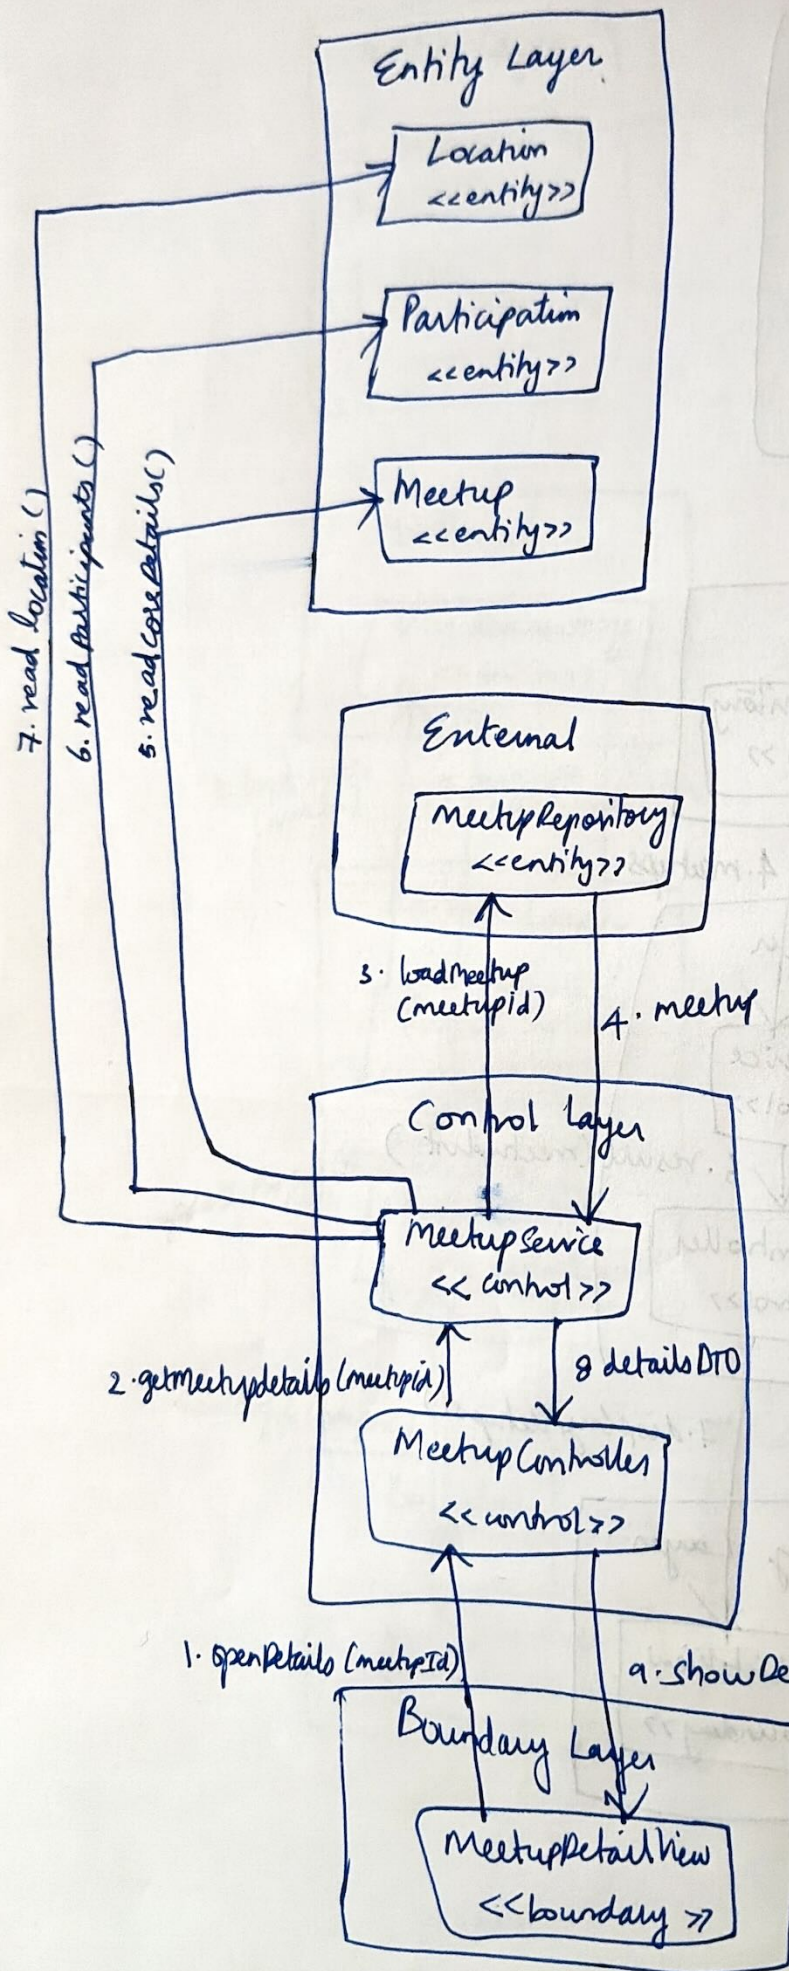 Entity Layer
Location
<<entity>>
Participation
<<entity>>
Meetup
<<entity>>
7. read location()
6. readParticipants()
5. readcoreDetails()
External
MeetupRepository
<<entity>>
3. loadMeetup
(meetupid)
4. meetup
Control Layer
MeetupService
<< control >>
2. getmeetupdetails(meetupid)
8 detailsDTO
MeetupController
<<control>>
1. openDetails (meetupId)
9. showDe
Boundary Layer
MeetupDetailView
<<boundary >>